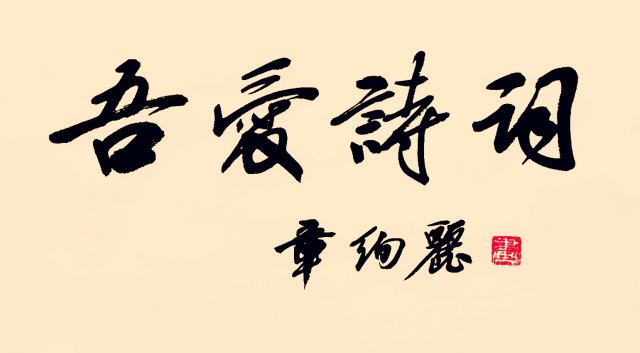 吾愛詩词
章绚麗